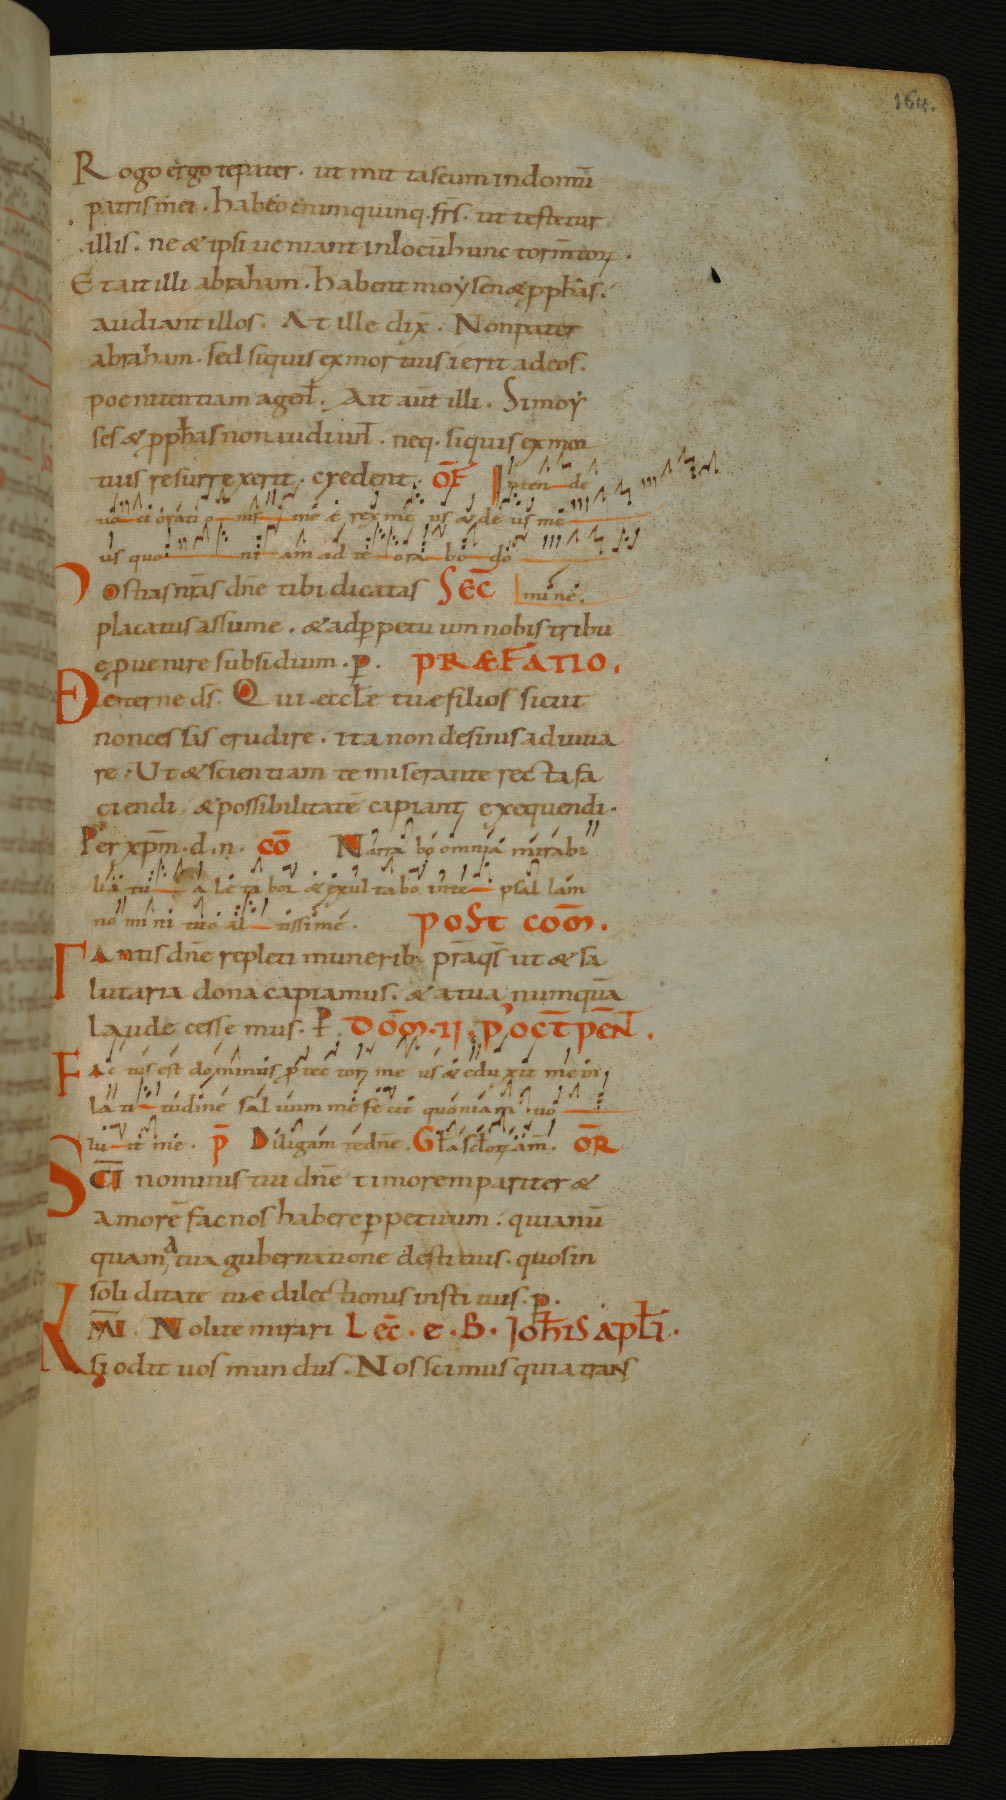 164.
Rogo ergo te pater. ut mittas eum in domū
patris mei. habeo enim quinq. frs̄. ut testetur
illis. ne & ipsi ueniant in locū hunc torm̄torꝝ.
Et ait illi abraham. habent moẏsen & ꝓph̄as.
audiant illos. At ille dix̄. Non pater
abraham. sed siquis ex mortuis ierit ad eos.
poenitentiam agen̄t. Ait aūt illi. Si moẏ
ses & ꝓph̄as non audiun̄t. neq. siquis ex mor
tuis resurrexerit. credent. OF̄ Inten de
uo ci orati o nis me ę rex me us & de us me
us quo ni am ad te ora bo do
Hostias nr̄as dn̄e tibi dicatas SEC̄ mine.
placatus assume. & ad ꝑpetuum nobis tribu
e ꝓuenire subsidium. ꝑ. PRÆFATIO.
Ð eterne ds̄. Qui ęccl̄ę tuę filios sicut
non cessas erudire. ita non desinis adiuua
re. Ut & scientiam te miserante recta fa
ciendi. & possibilitatē capiant exequendi.
Per xp̄m. d. n. CŌ Narra bo omnia mirabi
lia tu a lę ta bor & exul tabo in te psal lam
no mi ni tuo al tissime. POST COM̄.
Tantis dn̄e repleti munerib. pr̄a qs̄ ut & sa
lutaria dona capiamus. & a tua numquā
laude cessemus. P. DOM̄. II. P' OCT̄ PEN̄T.
Fac tus est dominus ꝓtec tor me us & edu xit me in
la ti tudine sal uum me fe cit quoniam uo
lu it me. P̄ Diligam te dn̄e. Gl̄a sc̄lorꝝ am̄. OR̄
SC̄I nominis tui dn̄e timorem pariter &
amorē fac nos habere ꝑpetuum. quia nū
quam a tua gubernatione destituis. quos in
soliditate tuę dilectionis instituis. ꝑ.
KM̄I. Nolite mirari LEC̄. E. B. IOH̄IS AP̄LI.
si odit uos mundus. Nos scimus quia trans